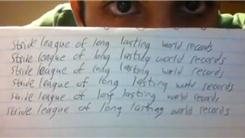 Stride league of long lasting world records
Stride league of long lasting world records
Stride league of long lasting world records
Stride league of long lasting world records
Stride league of long lasting world records
Stride league of long lasting world records